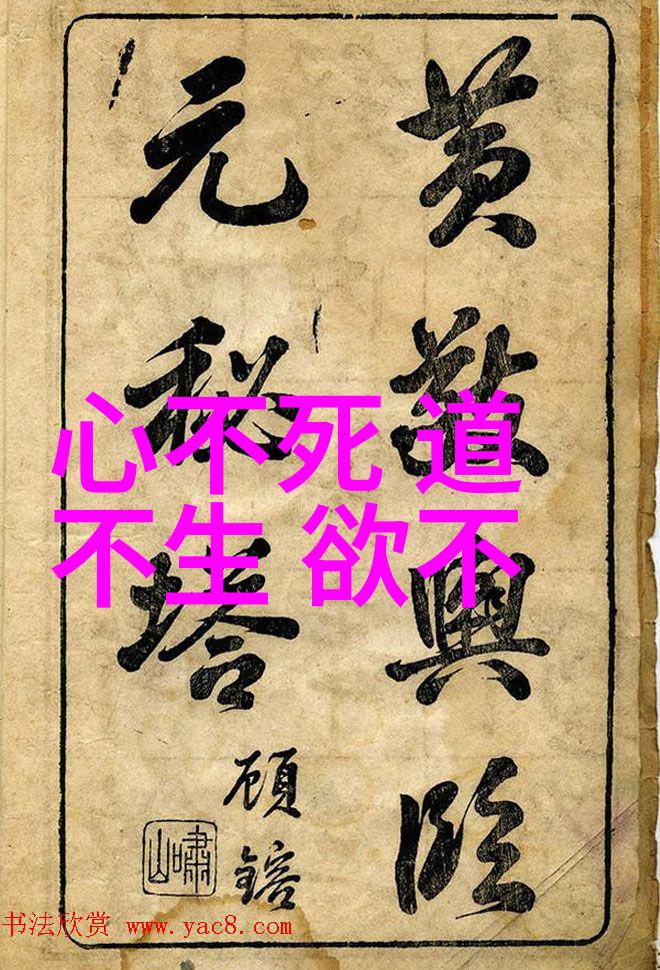 黄敬輿临
元秘塔
顾鎔
嘯山
心不死 道
不生 欲不
书法欣赏 www.yac8.com